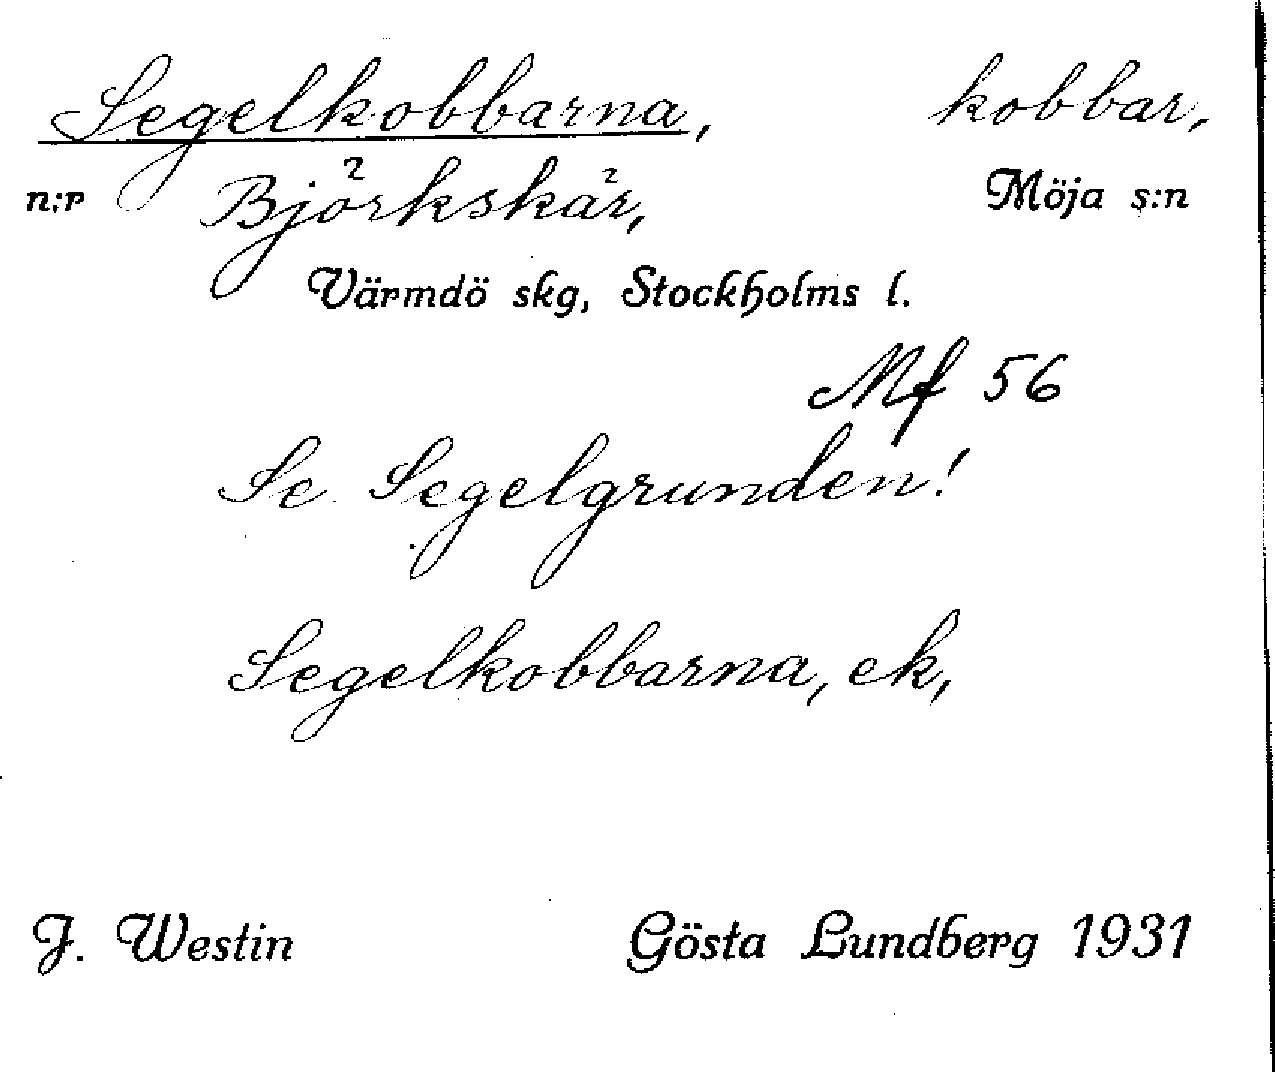 Segelkobbarna, kobbar,
n:r Björkskär, Möja s:n
Värmdö skg, Stockholms l.
Mf 56
Se Segelgrunden!
Segelkobbarna, ek,
J. Westin Gösta Lundberg 1931